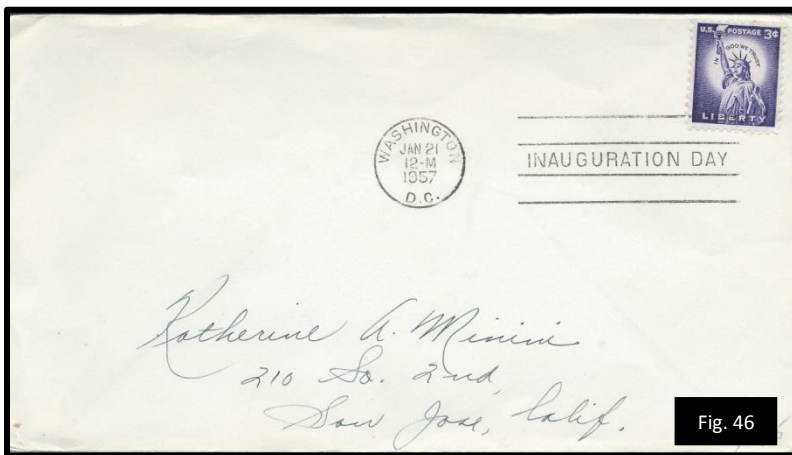 U.S. POSTAGE 3¢
IN GOD WE TRUST
LIBERTY
WASHINGTON
JAN 21
12-M
1957
D.C.
INAUGURATION DAY
Katherine A. Minini
210 So. 2nd,
San Jose, Calif.
Fig. 46